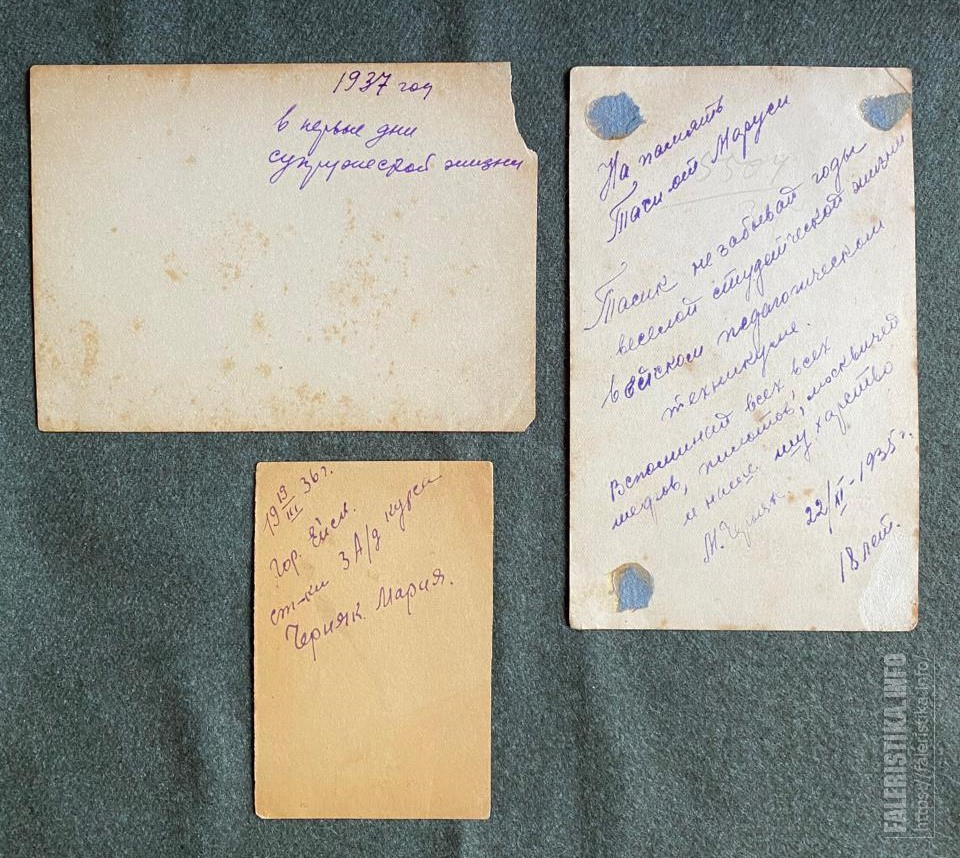 1937 год
в первые дни
супружеской жизни
На память
Таси от Маруси
5504
Тасик не забывай годы
веселой студенческой жизни
в Ейском педагогическом
техникуме.
Вспоминай всех всех
шефов, пилотов, москвичей
и наше
М. Черняк
22/XI-1935 г.
18 лет.
19 19/III 36 г.
гор. Ейск.
ст-ки 3 А/д курса
Черняк Мария.
FALERISTIKA.INFO
https://faleristika.info/